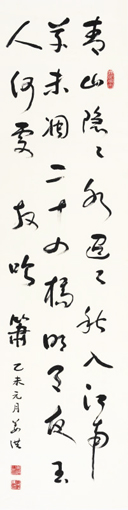 青山隐〻水迢〻秋入江南
草未凋二十四橋明月夜玉
人何處教吹簫
乙未元月